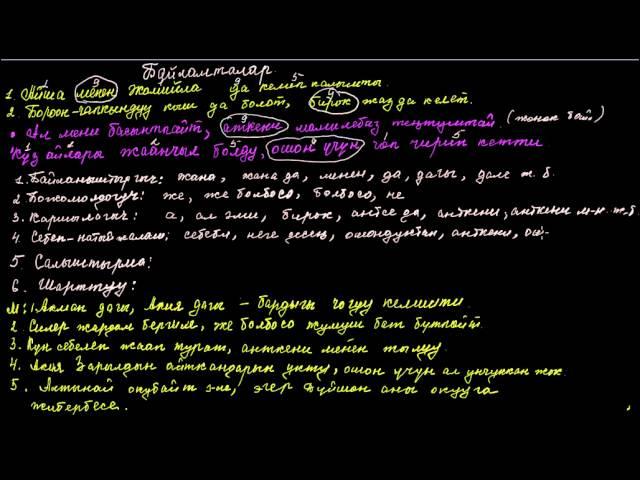 Байламталар
1. Айша менен Жамийла да келип калышты.
2. Бороон-чапкындуу кыш да болот, бирок жаз да келет.
Ал мени басынтпайт, анткени мамилебиз (жөнөк. байл)
Күз айлары жаанчыл болду, ошон үчүн чөп чирип кетти.
1. Байланыштыргыч: жана, жана да, менен, да, дагы, даг. ж.б.
2. Божомолдогуч: же, же болбосо, болбосо, не
3. Каршылагыч: а, ал эми, бирок, антсе да, анткени, анткени м-н. ж.б.
4. Себеп-натыйжалаш: себеби, неге десең, ошондуктан, анткени, ош.
5. Салыштырма:
6. Шарттуу:
М: 1. Акман дагы, Акия дагы – бардыгы чогуу келишти.
2. Силер жардам бергиле, же болбосо жумуш бат бүтпөйт.
3. Күн себелеп жаап турат, анткени менен жылуу.
4. Акия Зарылдын айткандарын укту, ошон үчүн ал унчуккан жок.
5. Алтынай окубайт э-ле, эгер Дүйшөн аны окууга
жибербесе.